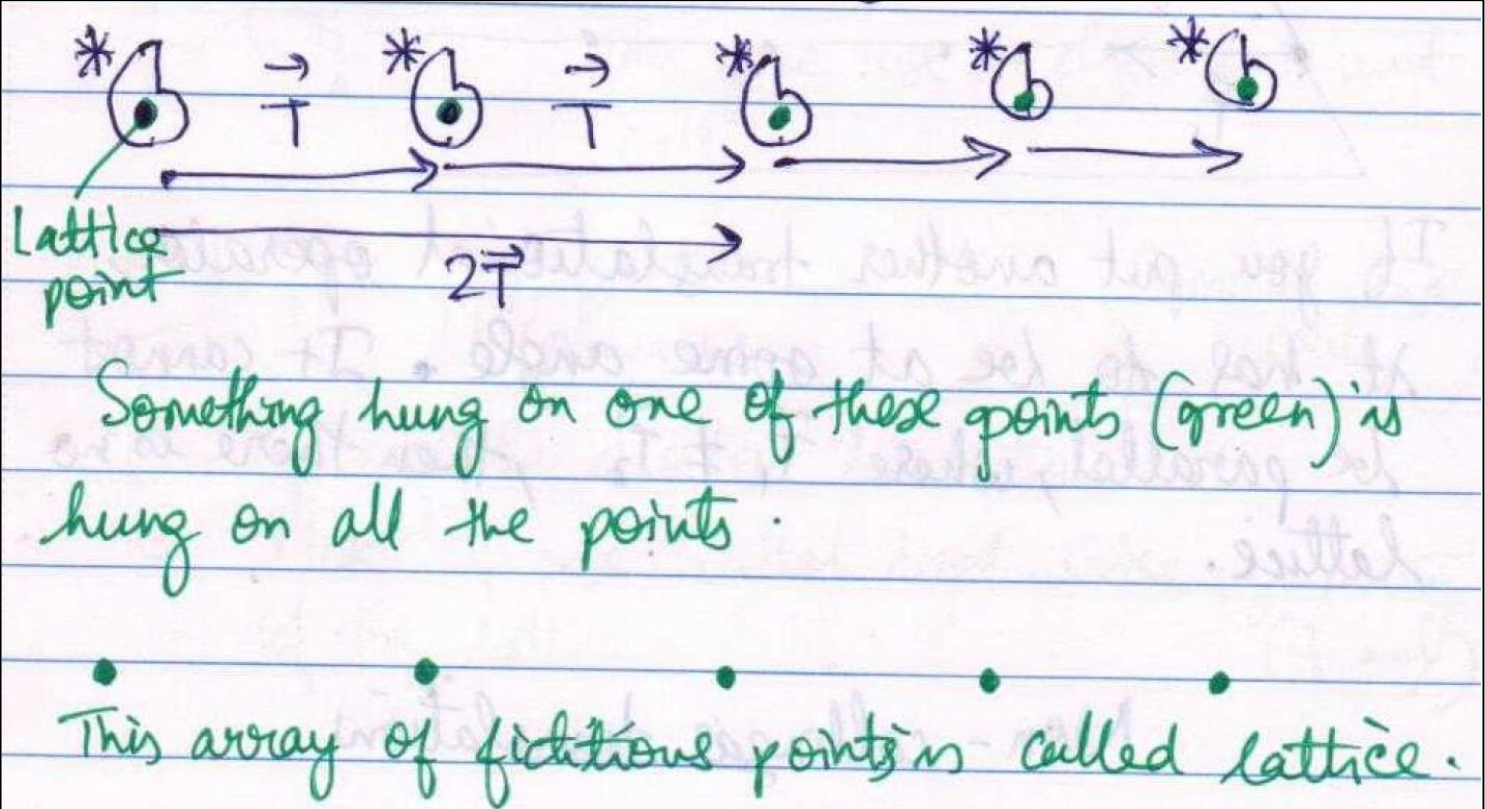 * * * * *
T⃗ T⃗
Lattice
point
2T⃗
Something hung on one of these points (green) is
hung on all the points.
This array of fictitious points is called lattice.